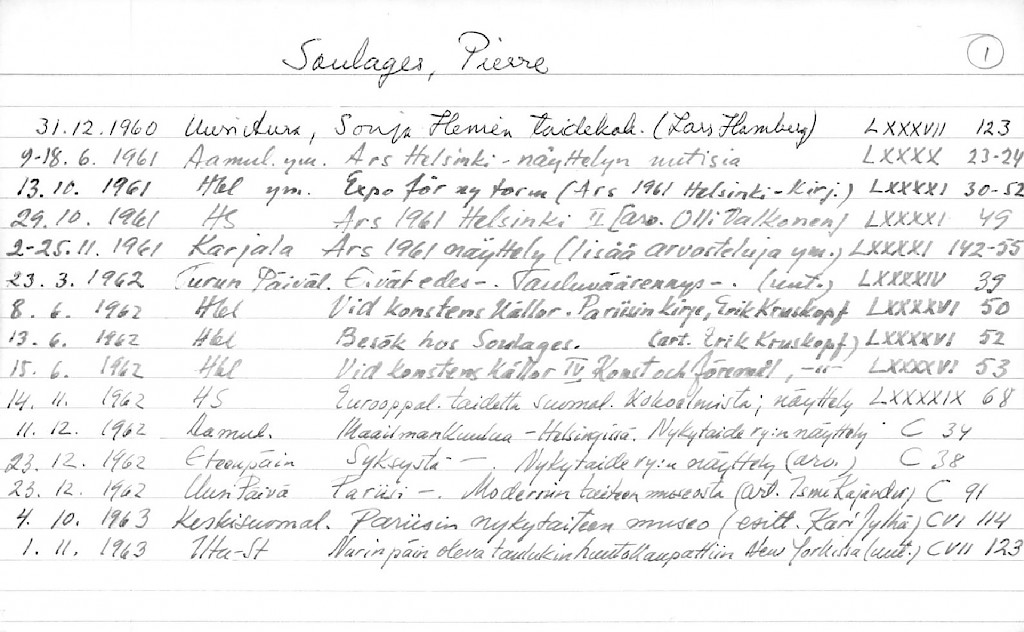 Soulages, Pierre 1
31.12.1960 Uusi Aura, Sonja Henien taidekok. (Lars Hamberg) LXXXVII 123
9-18. 6. 1961 Aamul. ym. Ars Helsinki - näyttelyn uutisia LXXXX 23-24
13. 10. 1961 Hbl ym. Expo för ny form (Ars 1961 Helsinki-Kirj.) LXXXXI 30-52
29. 10. 1961 HS Ars 1961 Helsinki II (arv. Olli Valkonen) LXXXXI 49
2-25.11. 1961 Karjala Ars 1961 näyttely (lisää arvosteluja ym.) LXXXXI 142-55
23. 3. 1962 Turun Päiväl. Eivät edes -. Tauluväärennys -. (uut.) LXXXXIV 39
8. 6. 1962 Hbl Vid konstens källor. Pariisin Kirje, Erik Kruskopf LXXXXVI 50
13. 6. 1962 Hbl Besök hos Soulages. (art. Erik Kruskopf) LXXXXVI 52
15. 6. 1962 Hbl Vid konstens källor IV Konst och föremål, -"- LXXXXVI 53
14. 11. 1962 HS Eurooppal. taidetta suomal. kokoelmista; näyttely LXXXXIX 68
11. 12. 1962 Aamul. Maailmankuulua - Helsingissä. Nykytaide ry:n näyttely C 34
23. 12. 1962 Eteenpäin Syksystä -. Nykytaide ry:n näyttely (arv.) C 38
23. 12. 1962 Uusi Päivä Pariisi -. Modernin taiteen museosta (art. Ismo Kajander) C 91
4. 10. 1963 Keskisuomal. Pariisin nykytaiteen museo (esitt. Kari Jylhä) CVI 114
1. 11. 1963 Uta-St Nurinpäin oleva taulukin huutokaupattiin New Yorkissa (uut.) CVII 123